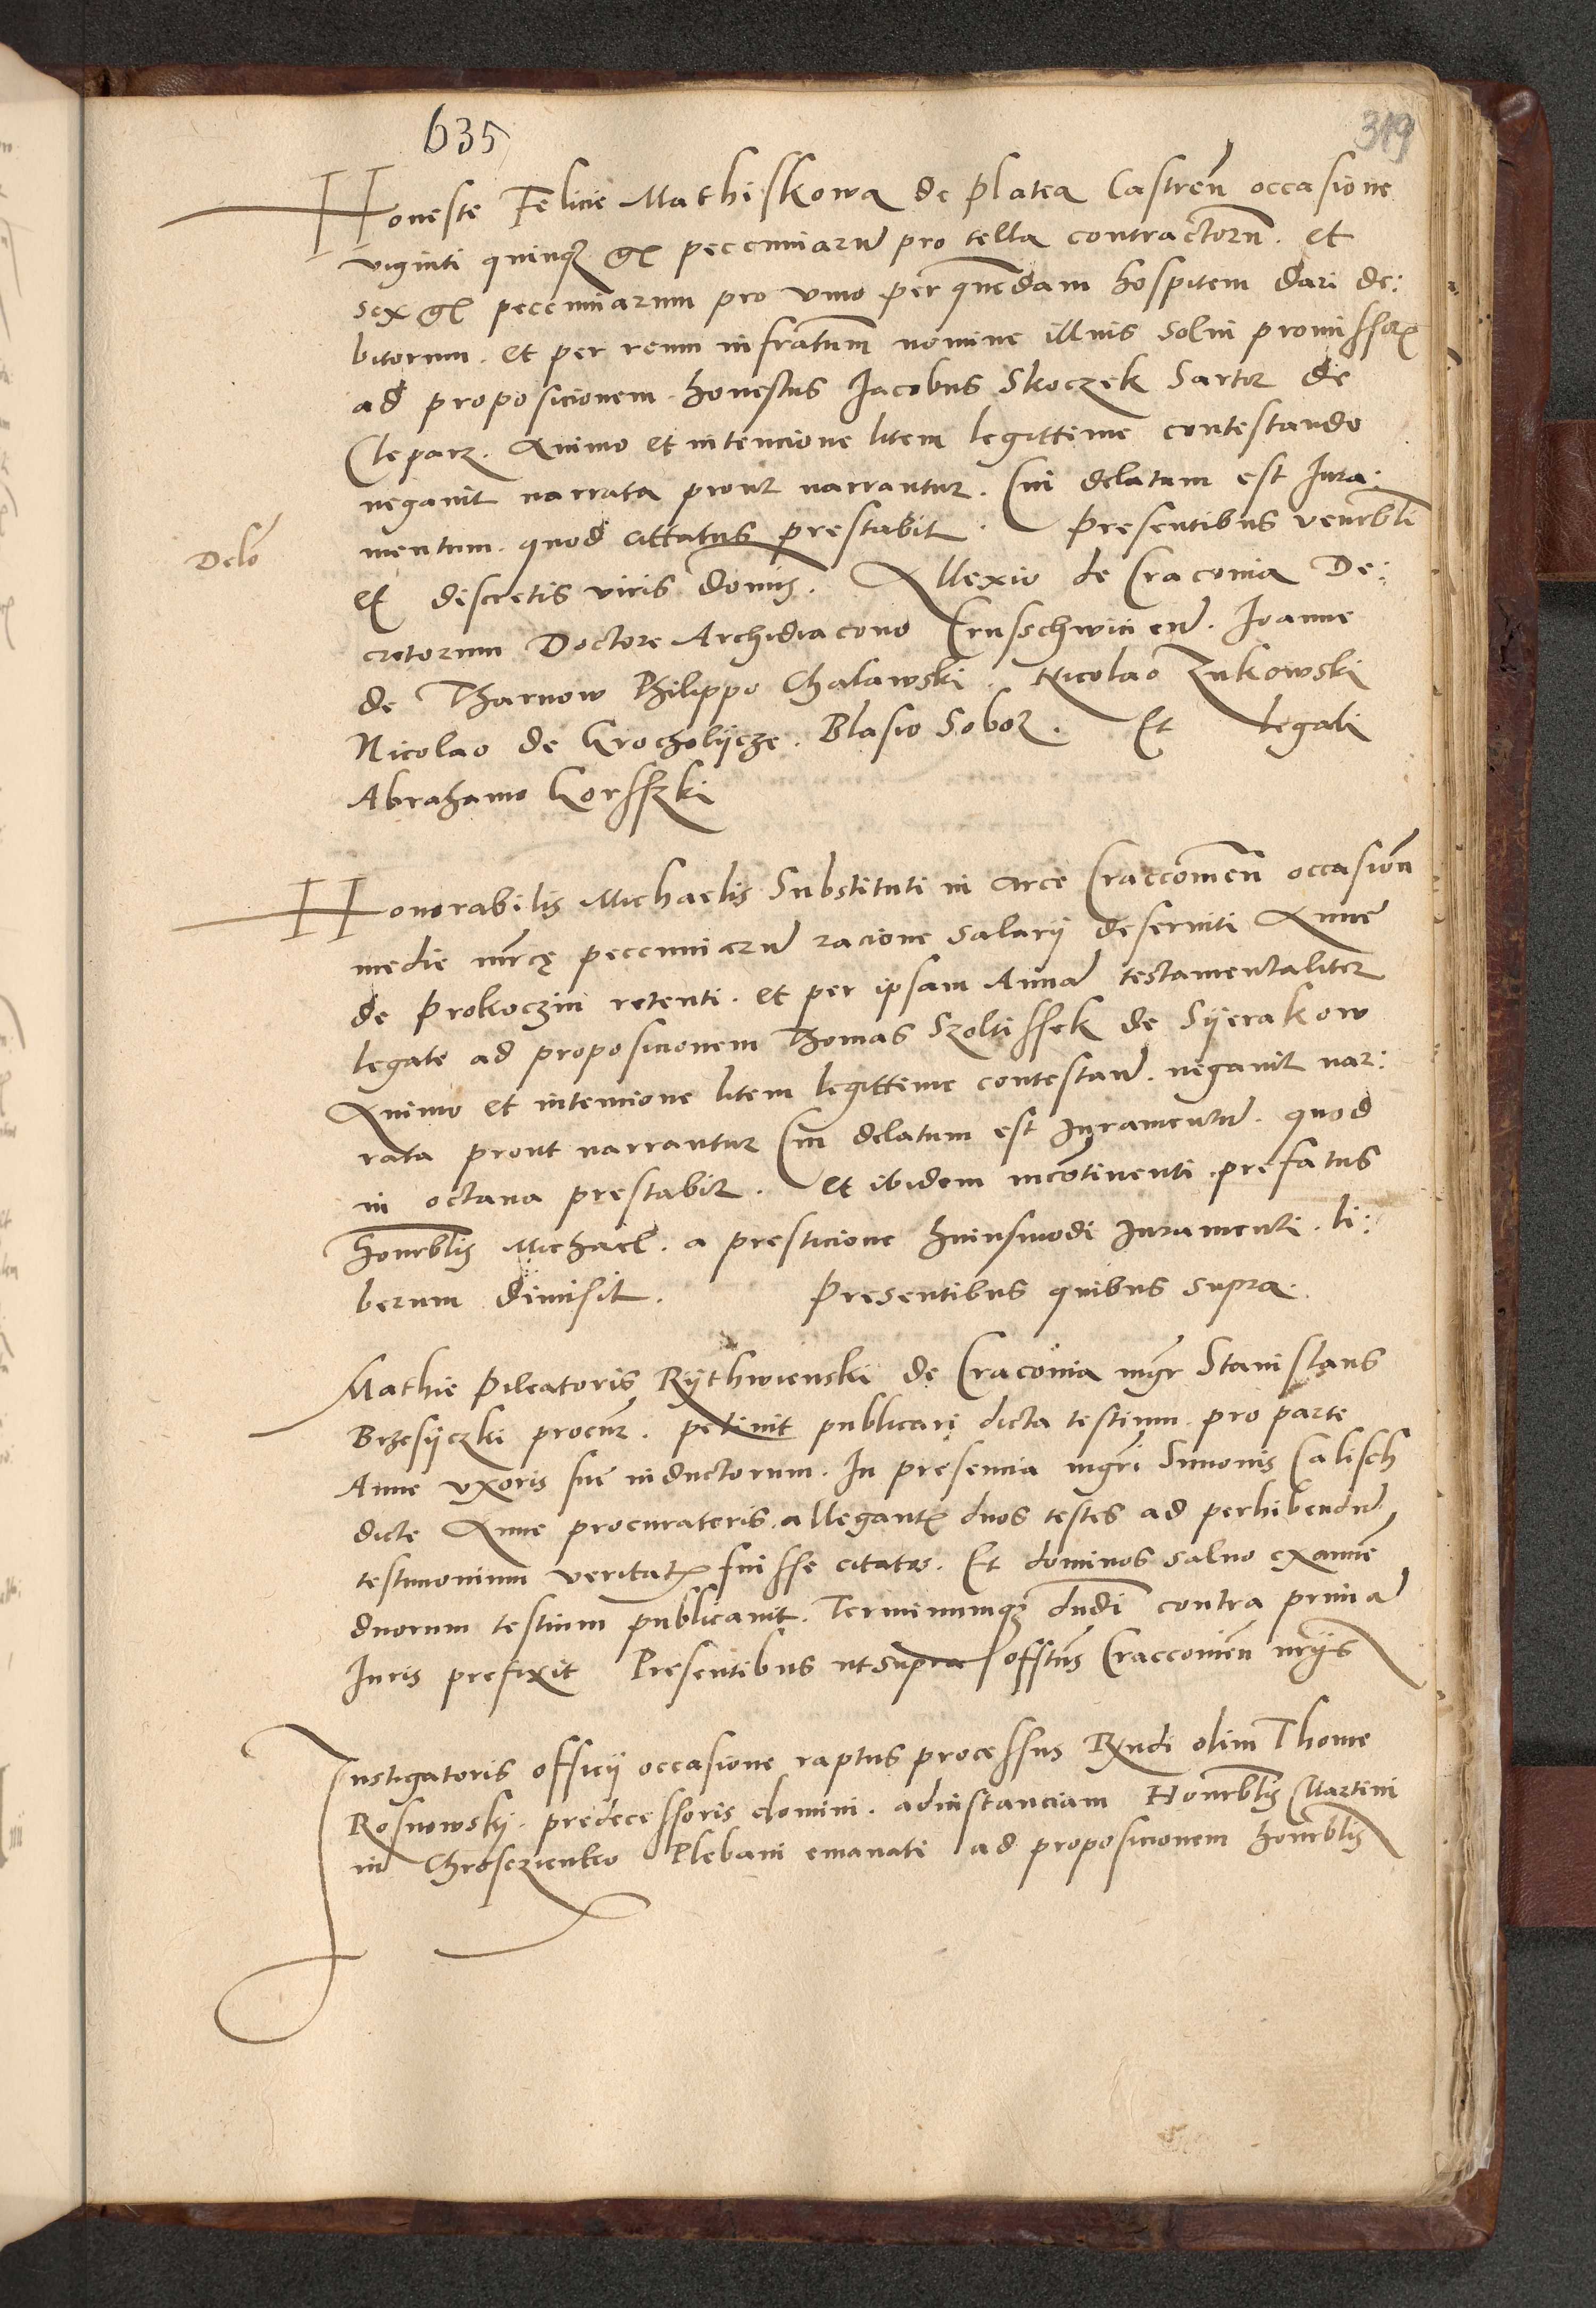 635
319
Honeste Felicie Mathiskowa de platea Castreñ occasione
viginti quinqȝ gl peccuniarum pro tella contractorum. et
sex gl peccuniarum pro vino per quendam hospitem dari de:
bitorum. et per reum infratum nomine illius solui promissorum
ad proposicionem. honestus Jacobus Skoczek Sartor de
Cleparz. Animo et intencione litem legittime contestando
negauit narrata prout narrantur. Cui delatum est Jura:
mentum. quod cittatus prestabit. Presentibus venrbli
Delo
et discretis viris dominis. Allexio de Craconia De:
cretorum Doctore Archidiacono Crusschwicien. Joanne
de Tharnow Philippo Chalawski. Nicolao Zukowski
Nicolao de Krocholijcze. Blasio Sobol. Et legali
Abrahamo Gorsszki
Honorabilis Michaelis Substituti in arce Cracconien occasion
medie mrcę peccuniarum racione salarij deseruiti Anne
de Prokoczin retenti. et per ipsam Annam testamentaliter
legate ad proposicionem Thomas Szoltissek de Sijerakow
Animo et intencione litem legittime contestan. negauit nar:
rata prout narrantur Cui delatum est Juramentum. quod
in octaua prestabit. et ibidem incotinenti prefatus
honrblis Michael. a presticione huiusmodi Juramenti. li:
berum dimisit. Presentibus quibus supra.
Mathie pileatoris Rijthwienski de Craconia mgr Stanislaus
Brzesijczki procur. petiuit publicari dicta testium pro parte
Anne vxoris sue inductorum. In presencia mgri Simonis Calisch
dicte Anne procuratoris. allegantis duos testes ad perhibendum
testimonium veritatis fuisse citatos. Et dominos saluo examine
duorum testium publicauit. Terminumqȝ dndi contra prima
Juris prefixit Presentibus ut supra offitus Cracconien nrijs
Instigatoris officij occasione raptus processus Rndi olim Thome
Rosnowskij. predecessoris domini. ad instanciam Honrblis Martini
in Chrosczienko Plebani emanati ad proposicionem honrblis